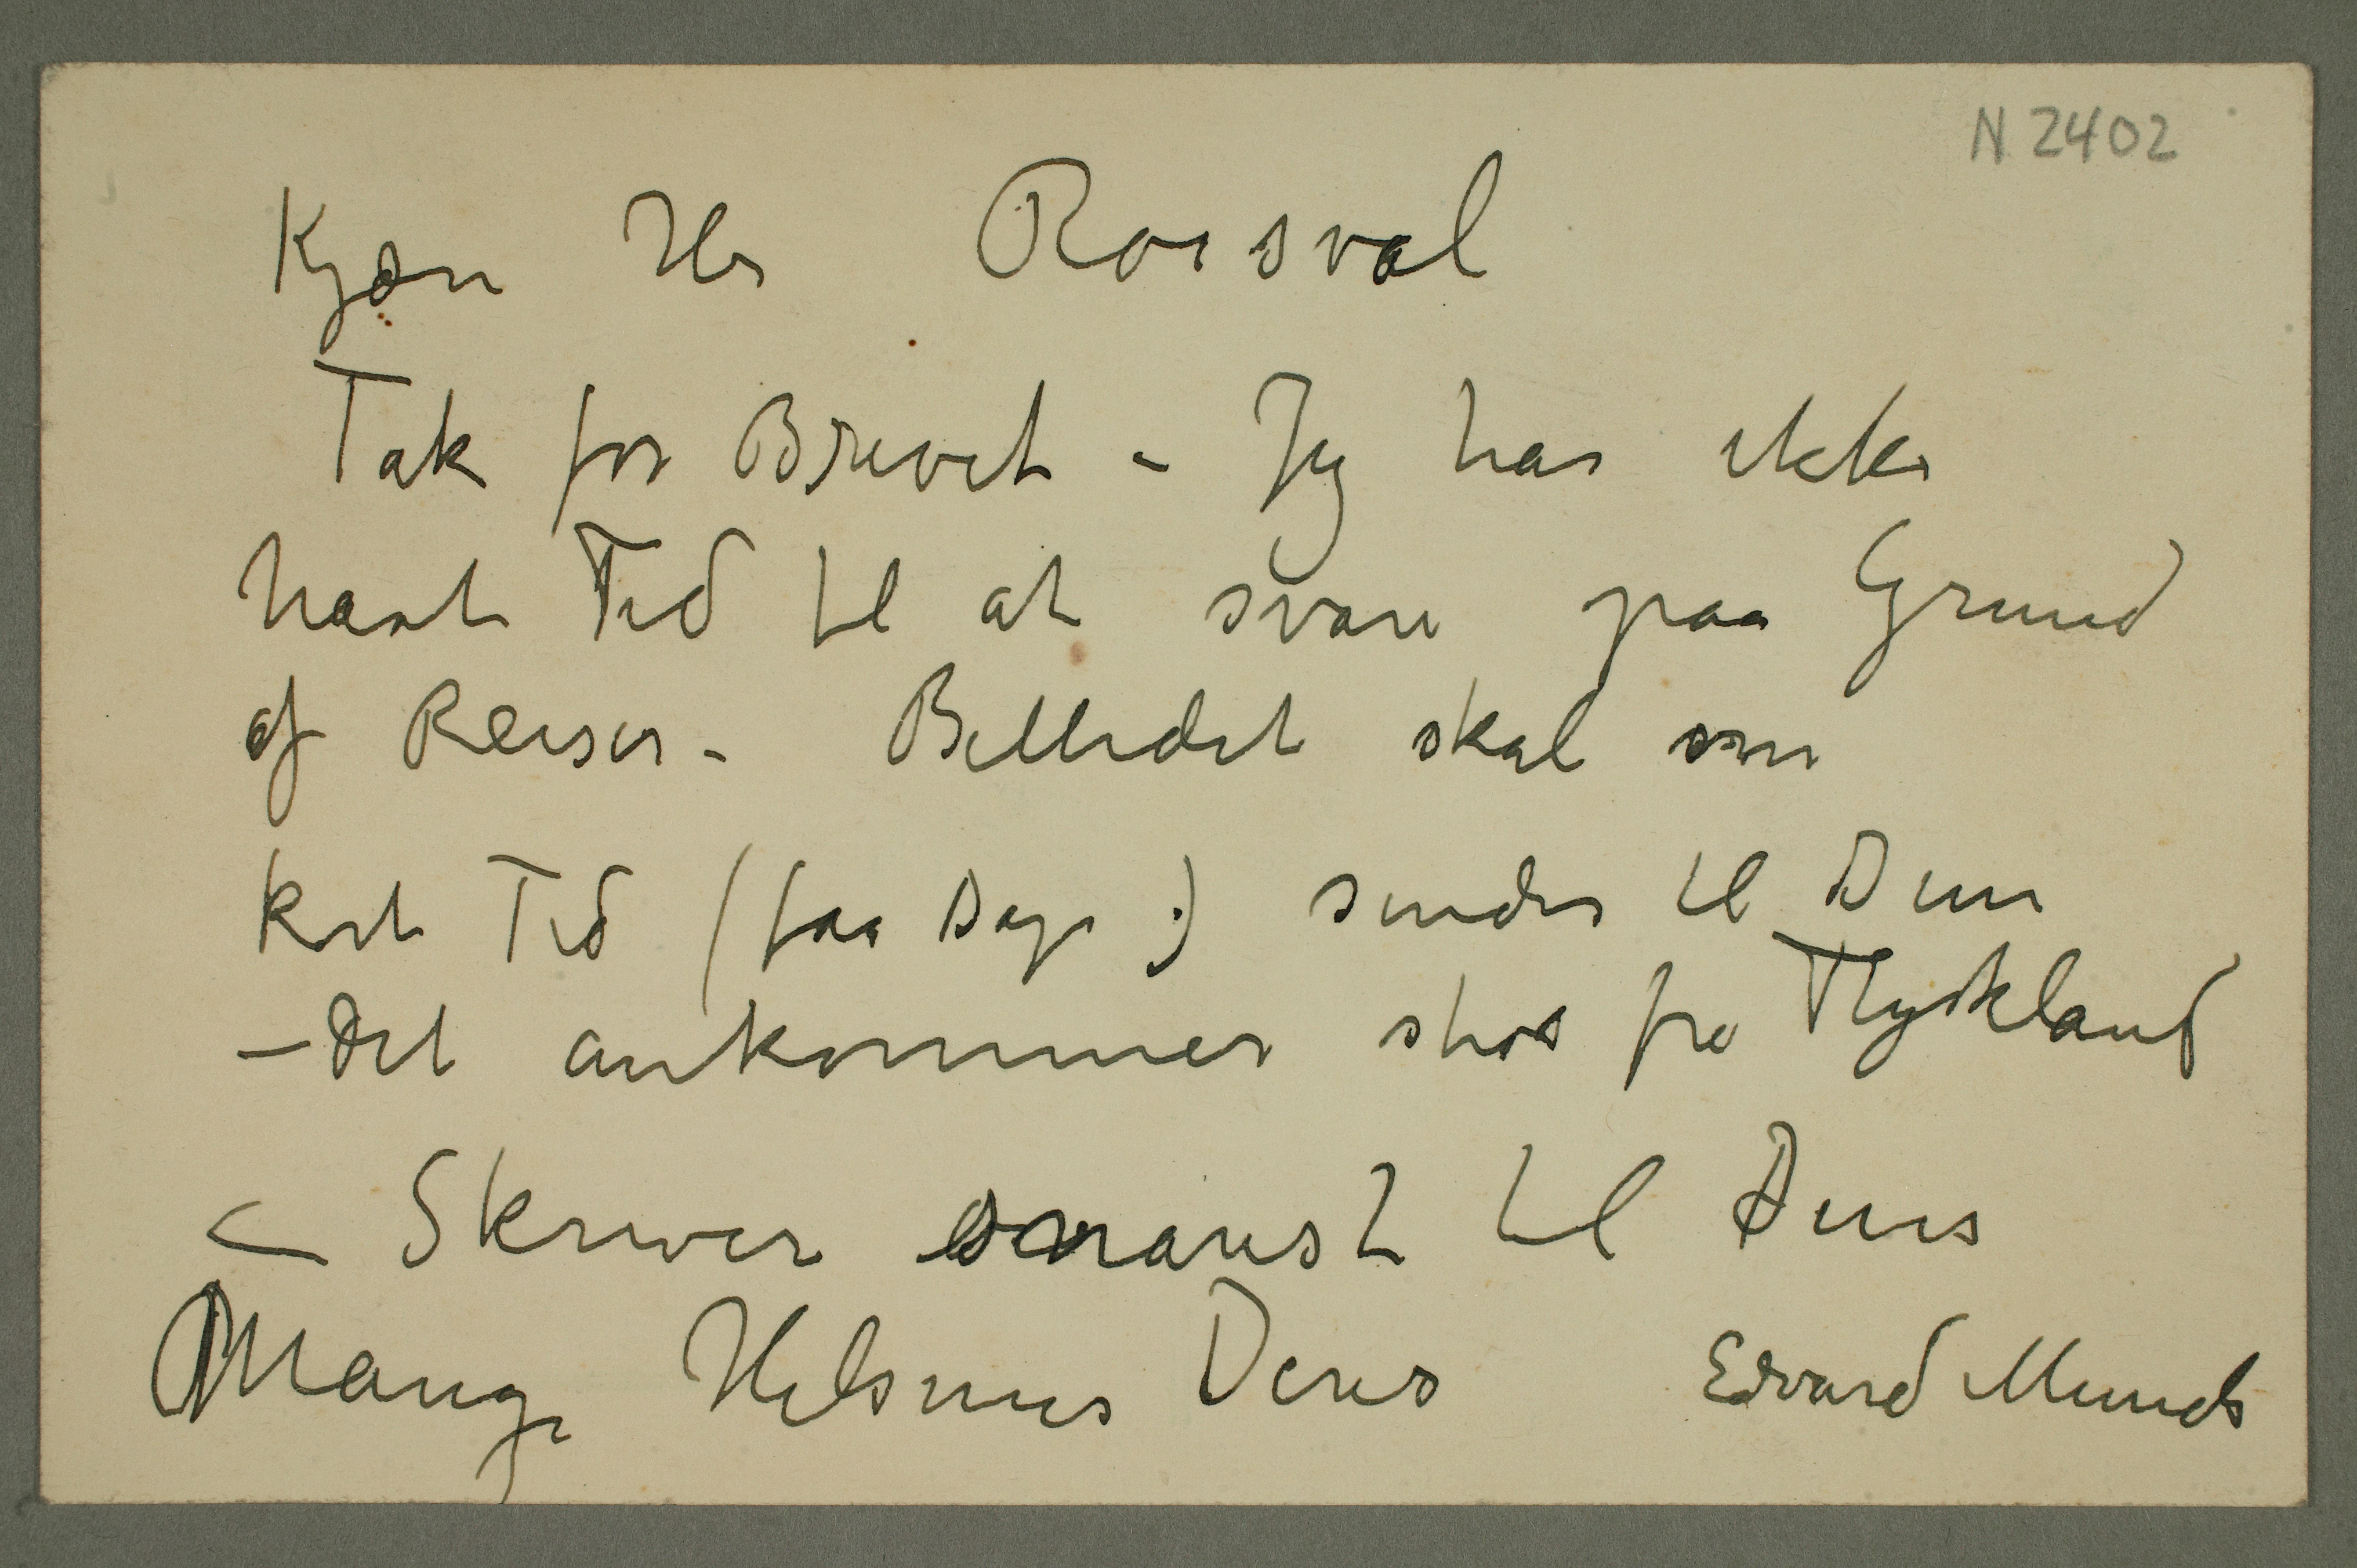 N 2402
Kjære Hr Roisval
Tak for Brevet – Jeg har ikke
havt Tid til at svare paa Grund
af Reiser – Billedet skal om
kort Tid (faa Dage :) sendes til Dem
– Det ankommer strax fra Tyskland
– Skriver snarest til Dem
Mange Hilsener Deres Edvard Munch